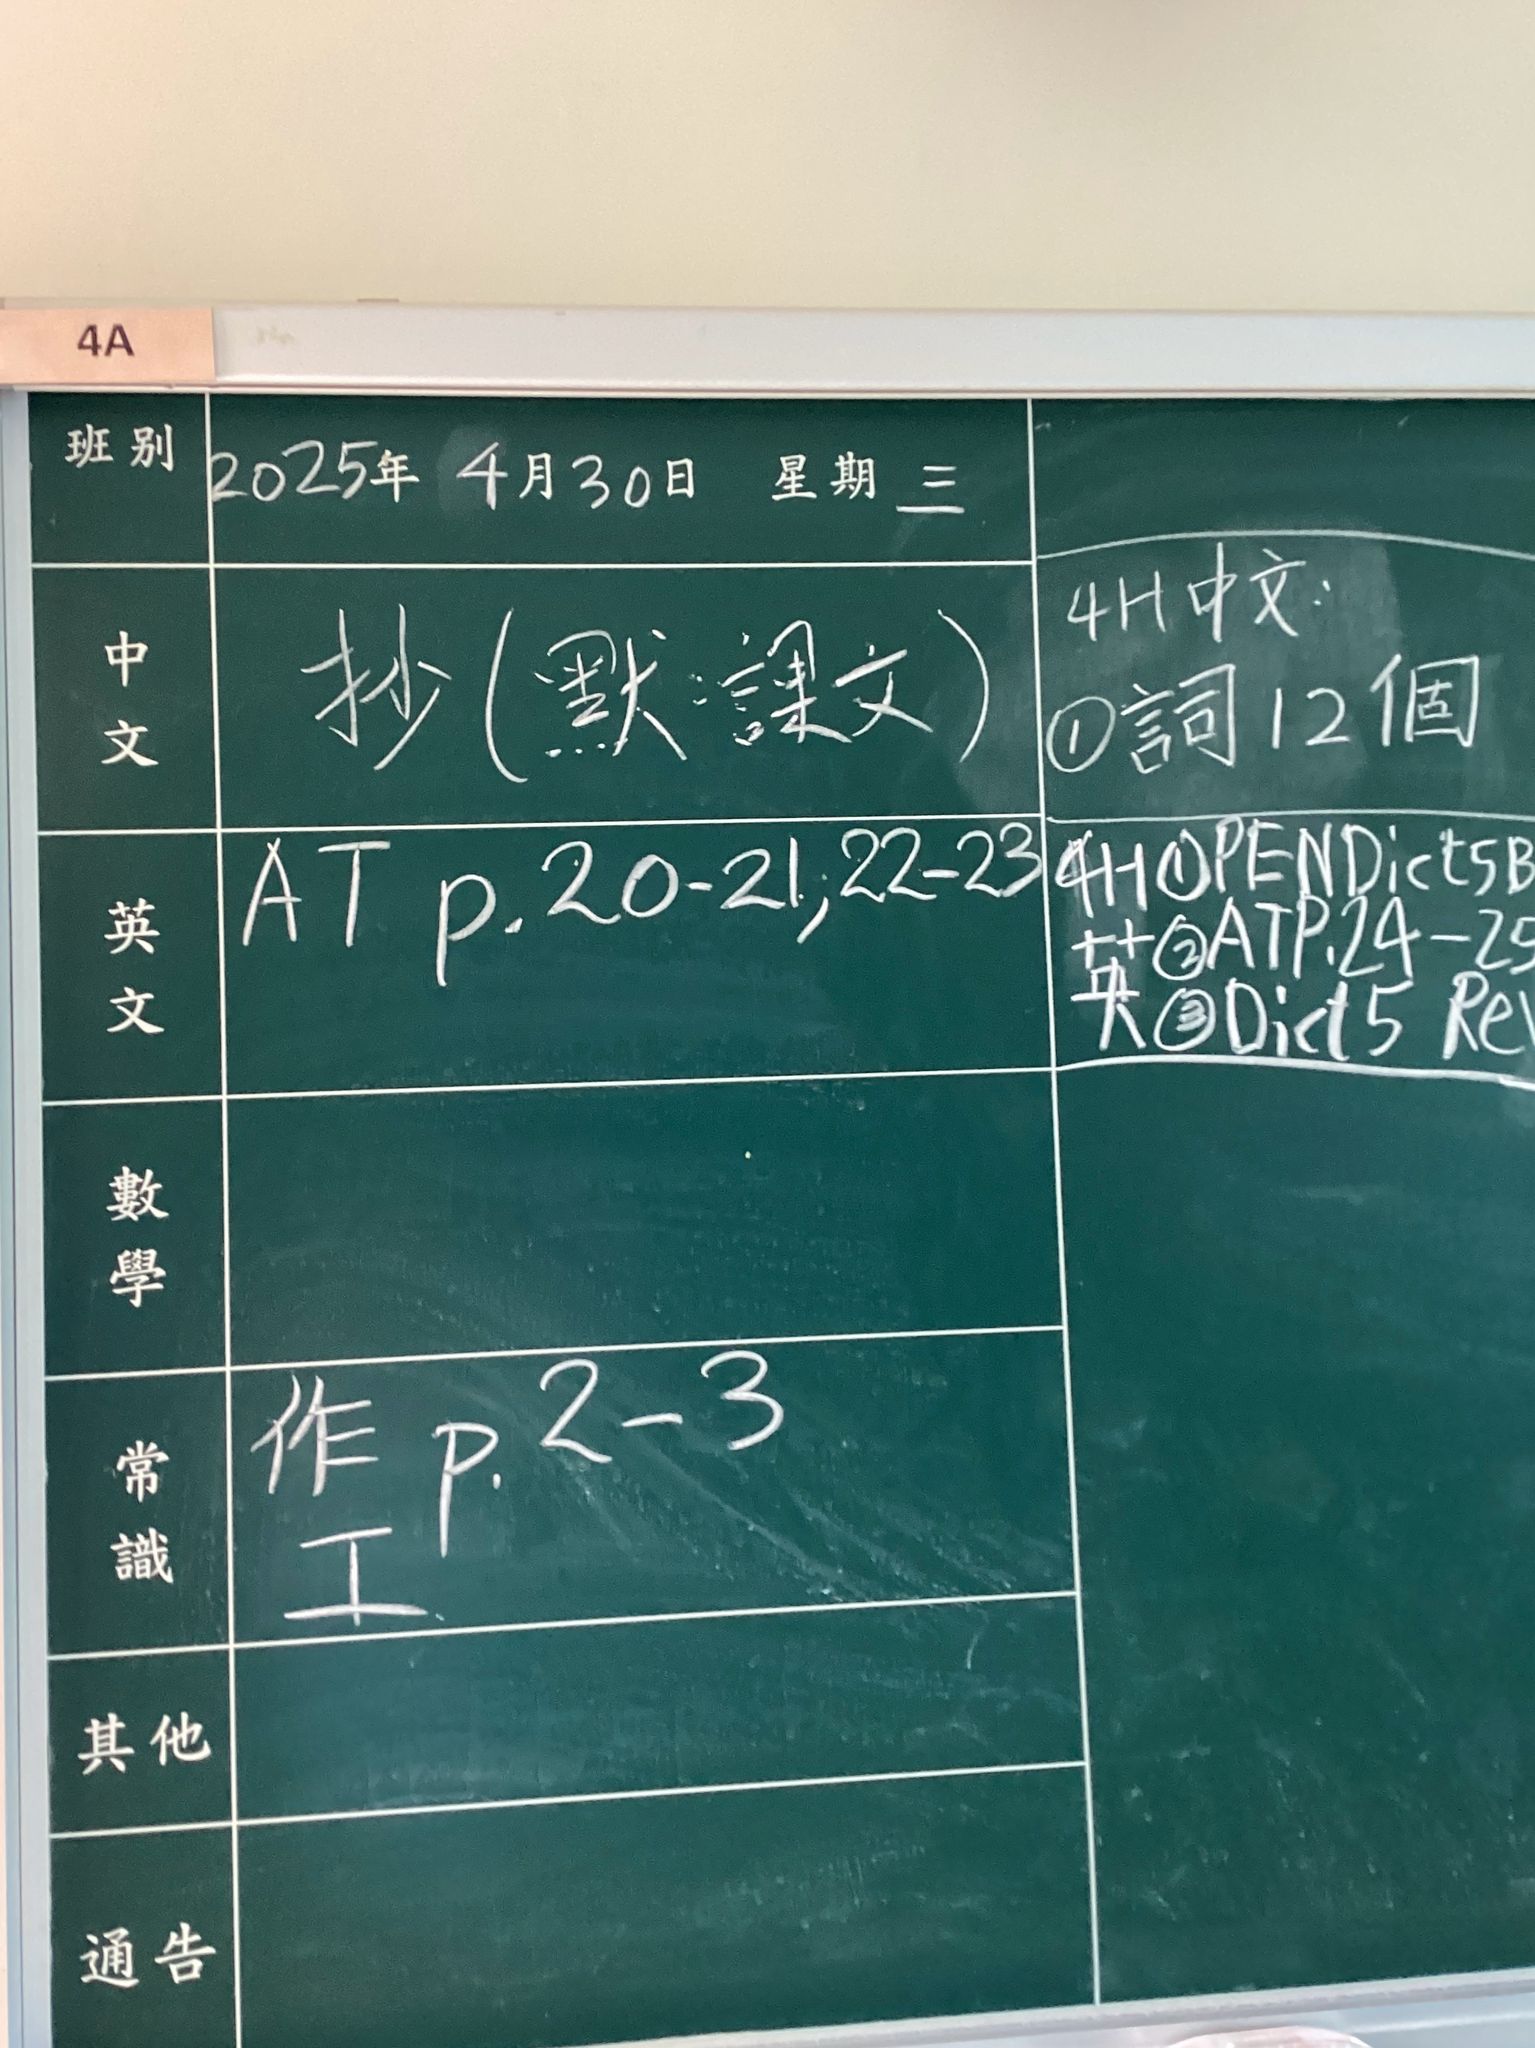 4A
班别
2025年 4月30日 星期三
中文
抄(默:課文)
4H中文:
①詞12個
英文
AT p.20-21,22-23
4H英
①PENDict5B
②ATP.24-25
③Dict5
數學
常識
作工 p.2-3
其他
通告